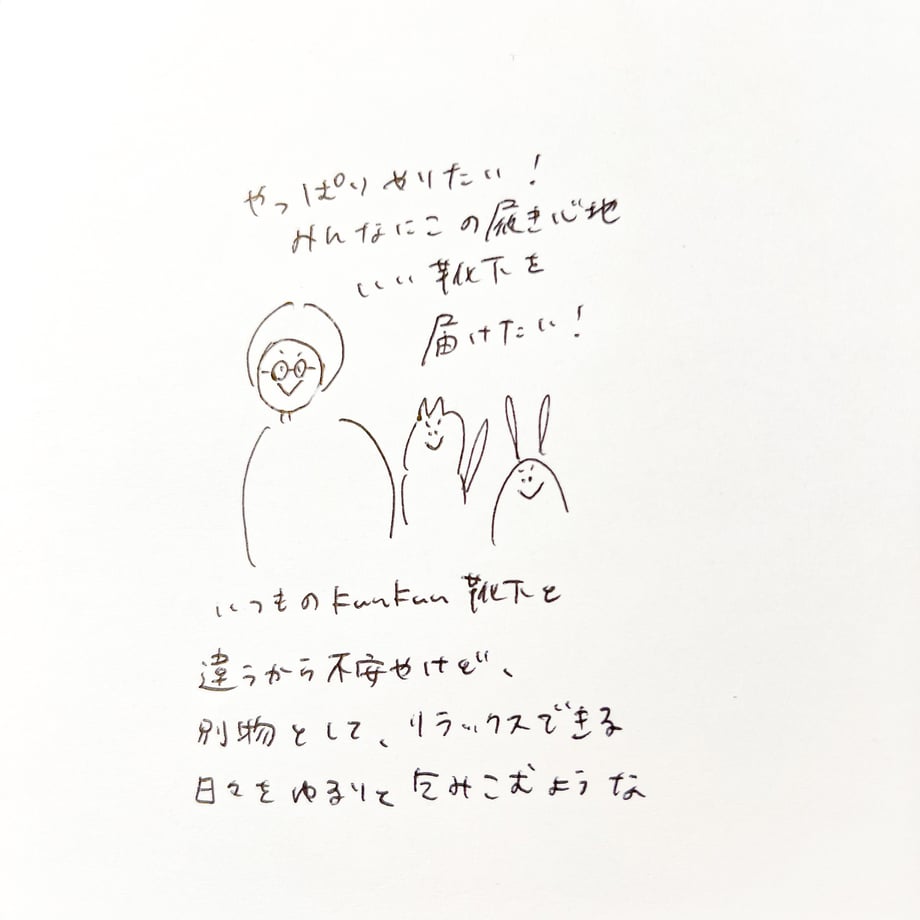 やっぱりやりたい！
みんなにこの履き心地
いい靴下を
届けたい！
いつものkunkun靴下と
違うから不安やけど、
別物として、リラックスできる
日々をゆるりと包みこむような